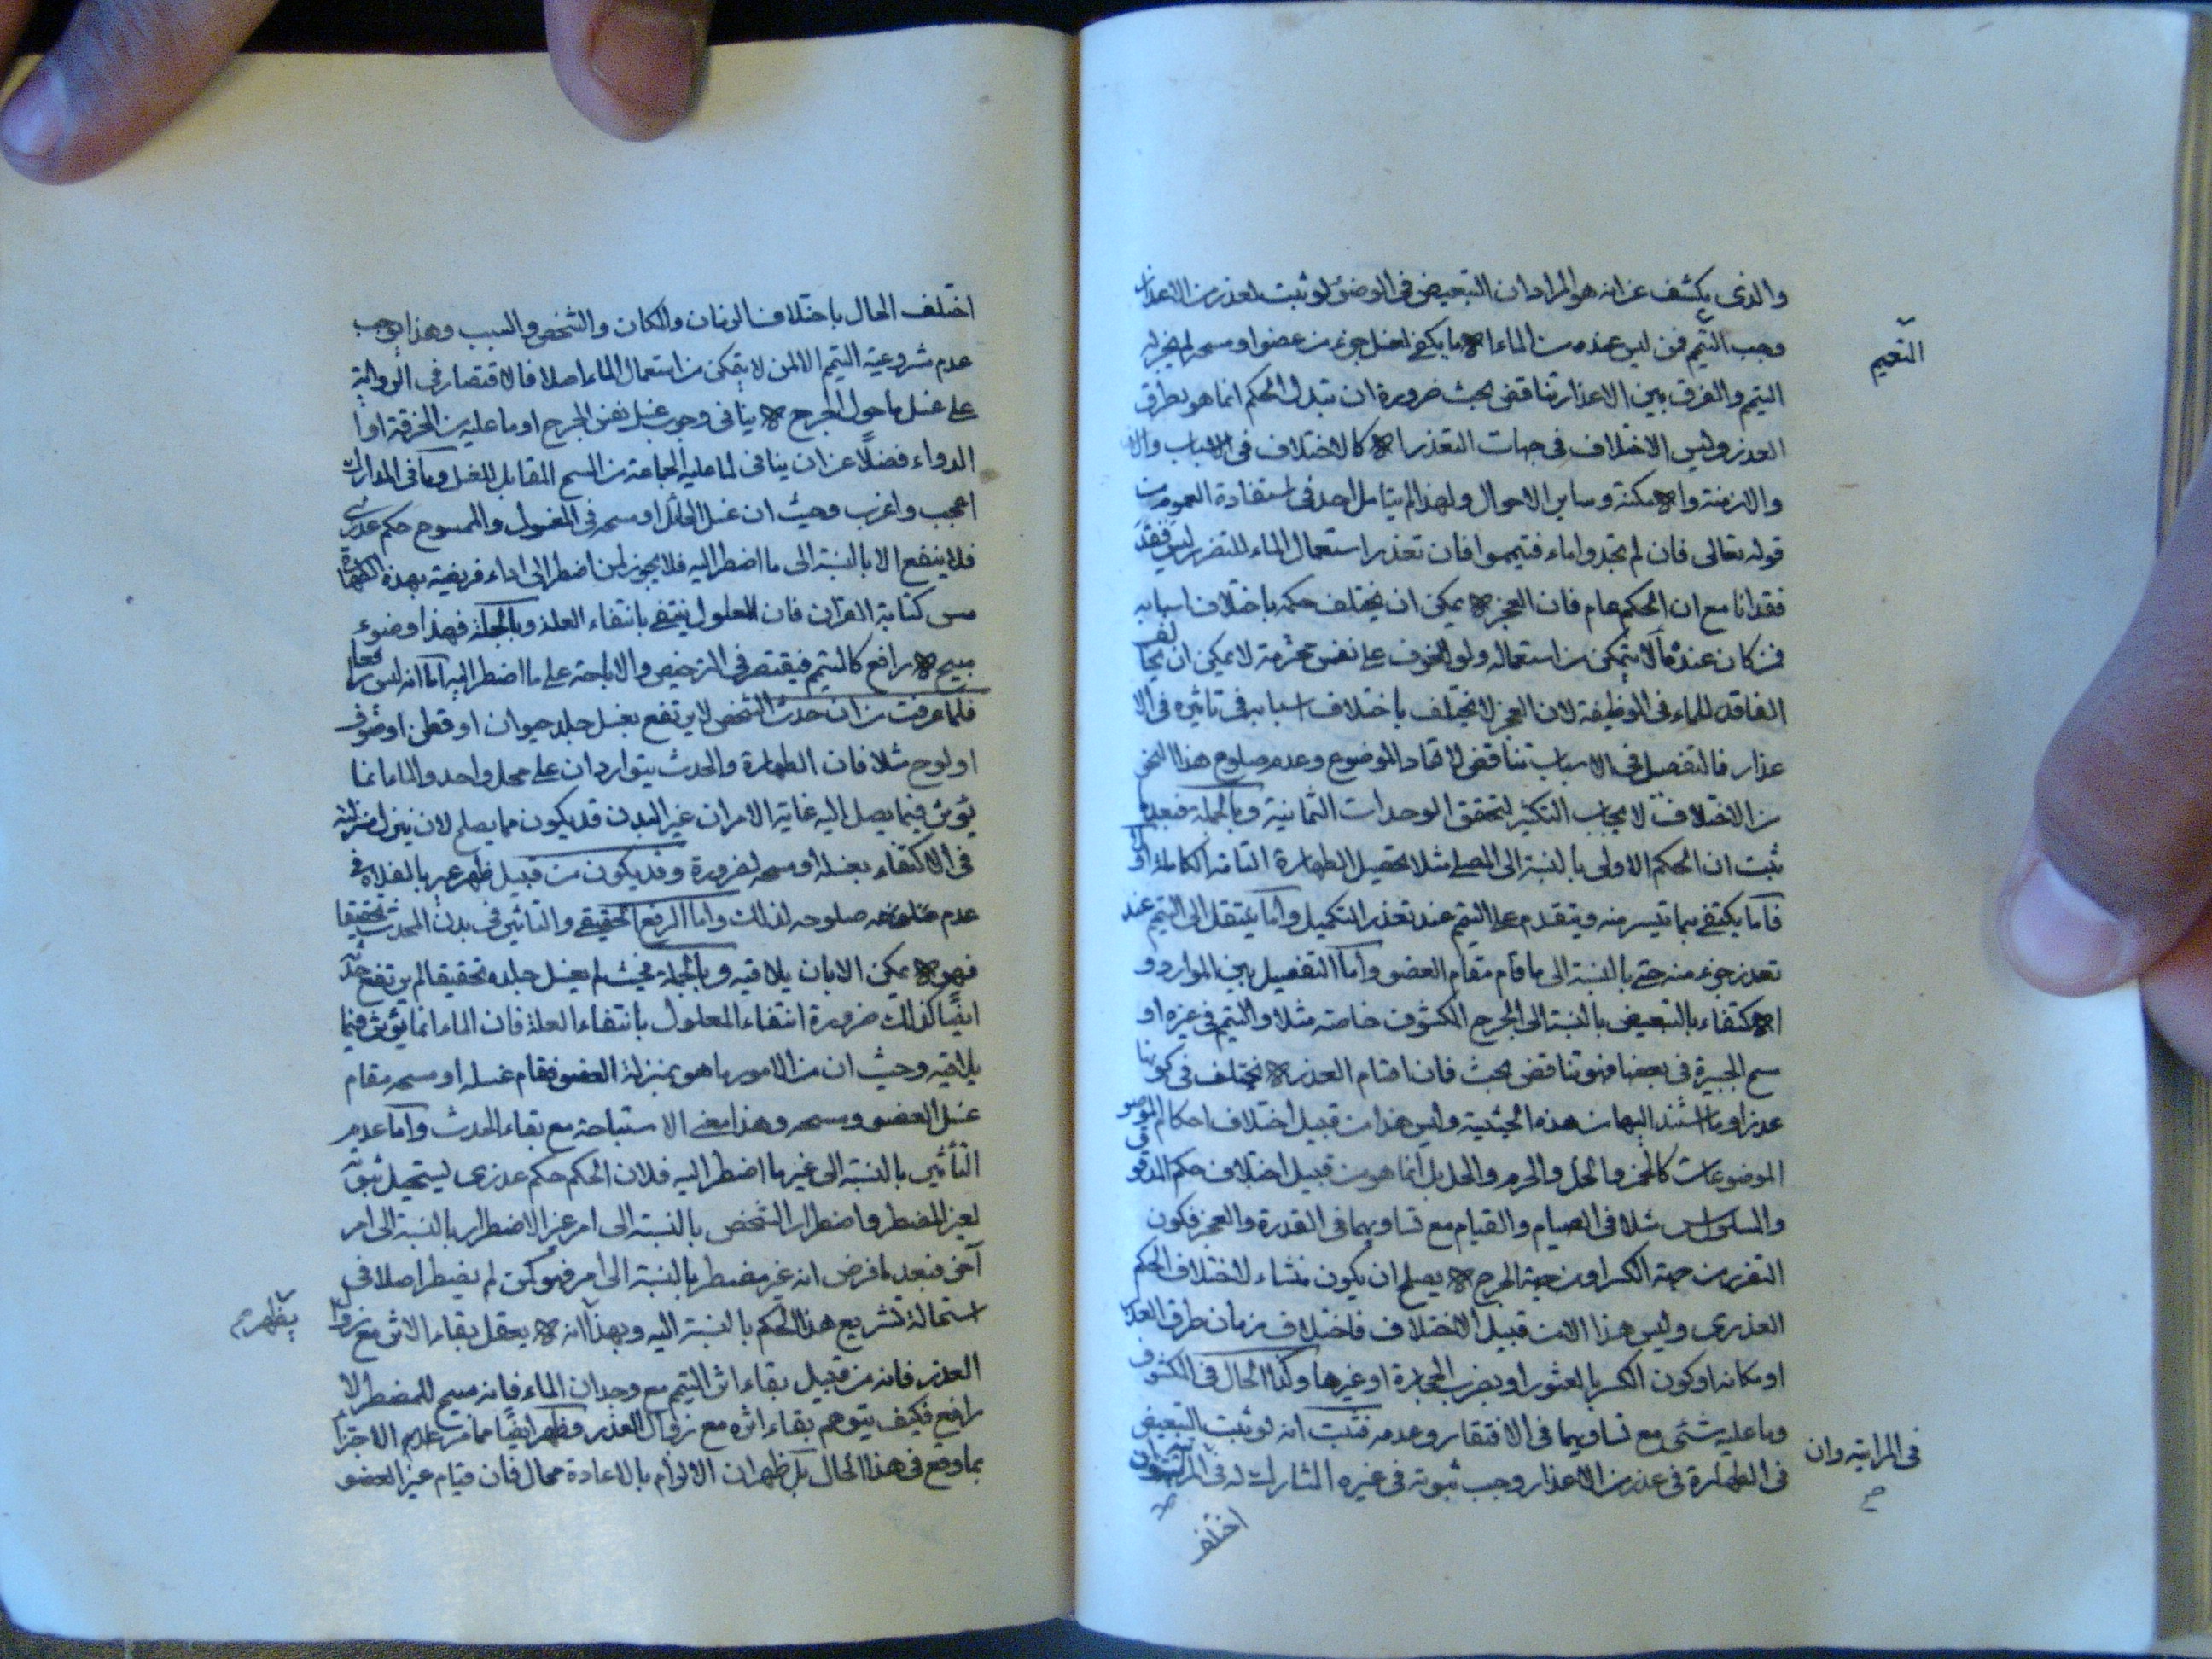 والذى يكشف عن انه هو المراد ان التبعيض فى الوضوء لو ثبت لعذر من الاعذار
وجب التيمم فمن ليس عنده من الماء الا ما يكفى لغسل جزء من عضو او مسحه لم يجز له
التعميم
التيمم والفرق بين الاعذار تناقض بحت ضرورة ان تبدل الحكم انما هو بطرق
العذر وليس الاختلاف فى جهات التعذر الا كالاختلاف فى الاسباب
والازمنة والامكنة وساير الاحوال ولهذا لم يتامل احد فى استفادة العموم من
قوله تعالى فان لم تجدوا ماء فتيمموا فان تعذر استعمال الماء للتضرر ليس
فقدانا مع ان الحكم عام فان العجز لا يمكن ان يختلف حكمه باختلاف اسبابه
فمن كان عنده ما لا يتمكن من استعماله ولو للخوف على نفس محترمة لا يمكن ان يخالف
الفاقد للماء فى الوظيفة لان العجز لا يختلف باختلاف اسبابه فى تاثيره فى الا
عذار فالتفصيل فى الاسباب تناقض لاتحاد الموضوع وعدم صلوح هذا النحو
من الاختلاف لايجاب التكثر لتحقق الوحدات الثمانية وبالجملة فبعد ما
ثبت ان الحكم الاولى بالنسبة الى المصلى مثلا تحصيل الطهارة التامة الكاملة
فاما يكتفى بما تيسر منه ويتقدم على التيمم عند تعذر التكميل واما ينتقل الى التيمم عند
تعذر جزء منه حتى بالنسبة الى ما قام مقام العضو واما التفصيل بين الموارد و
الاكتفاء بالتبعيض بالنسبة الى الجرح المكشوف خاصة مثلا والتيمم فى غيره او
مسح الجبيرة فى بعضها فهو تناقض بحت فان اقسام العذر لا تختلف فى كونها
عذرا وما استند اليها من هذه الحيثية وليس هذا من قبيل اختلاف احكام
الموضوعات كالخمر والخل والحرم والحل بل انما هو من قبيل اختلاف حكم المدقوق
والمسلول مثلا فى الصيام والقيام مع تساويهما فى القدرة والعجز فكون
التضرر من جهة الكسر او من جهة الجرح لا يصلح ان يكون منشاء لاختلاف الحكم
العذرى وليس هذا الا من قبيل الاختلاف فاختلاف زمان طرق العذر
او مكانه او كون الكسر بالعثور او بضرب الحجارة او غيرها وكذا الحال فى المكشوف
وما عليه شئ مع تساويهما فى الافتقار وعدمه فثبت انه لو ثبت التبعيض
فى الطهارة فى عذر من الاعذار وجب ثبوته فى غيره المشارك له فى
فى المراتبة وان
صح
اختلف
اختلف الحال باختلاف الزمان والمكان والشخص والسبب وهذا يوجب
عدم مشروعية التيمم الا لمن لا يتمكن من استعمال الماء اصلا فالاقتصار فى الرواية
على غسل ما حول الجرح لا ينافى وجوب غسل نفس الجرح او ما عليه من الخرقة او
الدواء فضلاً عن ان ينافى لما عليه الجماعة من المسح المقابل للغسل وما فى المدارك
اعجب واغرب وحيث ان غسل الحائل او مسحه فى المغسول والممسوح حكم عذرى
فلا ينفع الا بالنسبة الى ما اضطر اليه فلا يجوز لمن اضطر الى اداء فريضة بهذه الطهارة
مس كتابة القران فان المعلول ينتفى بانتفاء العلة وبالجملة فهذا وضوء
مبيح لا رافع كالتيمم فيقتصر فى الترخيص والاباحة على ما اضطر اليه اما انه ليس رافعا
فلما عرفت من ان حدث الشخص لا يرتفع بغسل جلد حيوان او قطن او صوف
او لوح مثلا فان الطهارة والحدث يتواردان على محل واحد والماء انما
يؤثر فيما يصل اليه غاية الامر ان غير البدن قد يكون مما يصلح لان ينزل منزلته
فى الاكتفاء بغسله او مسحه لضرورة وقد يكون من قبيل ظهر عير بالفلاة فى
عدم صلوحه لذلك واما الرفع الحقيقى والتاثير فى بدن المحدث تحقيقا
فهو لا يمكن الا بان يلاقيه وبالجملة فحيث لم يغسل جلده تحقيقا لم يرتفع حدثه
ايضًا كذلك ضرورة انتفاء المعلول بانتفاء العلة فان الماء انما يؤثر فيما
يلاقيه وحيث ان من الامور ما هو بمنزلة العضو فقام غسله او مسحه مقام
غسل العضو ومسحه وهذا معنى الاستباحة مع بقاء الحدث واما عدم
التأثير بالنسبة الى غير ما اضطر اليه فلان الحكم حكم عذرى يستحيل ثبوته
لغير المضطر واضطرار الشخص بالنسبة الى امر غير الاضطرار بالنسبة الى امر
آخر فبعد ما فرض انه غير مضطر بالنسبة الى امر فهو كمن لم يضطر اصلا فى
استحالة تشريع هذا الحكم بالنسبة اليه وبهذا انه لا يعقل بقاء الاثر مع زوال
يظهر
العذر فانه من قبيل بقاء اثر التيمم مع وجدان الماء فانه مبيح للمضطر لا
رافع فكيف يتوهم بقاء اثره مع زوال العذر وظهر ايضًا مما مر عدم الاجتزاء
بما وقع فى هذا الحال بل ظهر ان الالزام بالاعادة محال فان قيام غير العضو